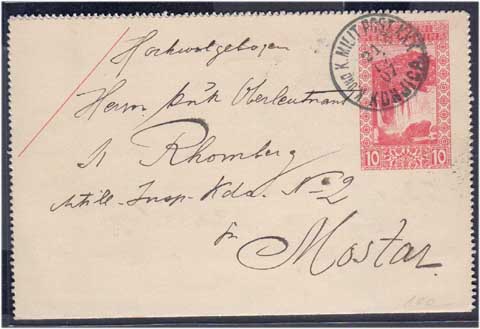 Hochwohlgeboren
Herrn k.u.k. Oberleutnant
Rhomberg
Artill.-Insp.-Kdo. No 2
in
Mostar
K. UND K. MILIT. POST
21.
07
KONJICA
10 10